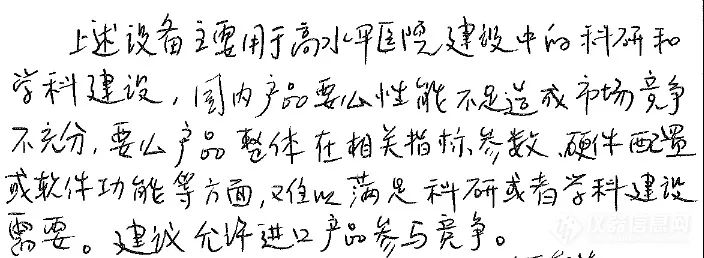 上述设备主要用于高水平医院建设中的科研和
学科建设，国内产品要么性能不足造成市场竞争
不充分，要么产品整体在相关指标、参数、硬件配置
或软件功能等方面，难以满足科研或者学科建设
需要。建议允许进口产品参与竞争。
仪器信息网